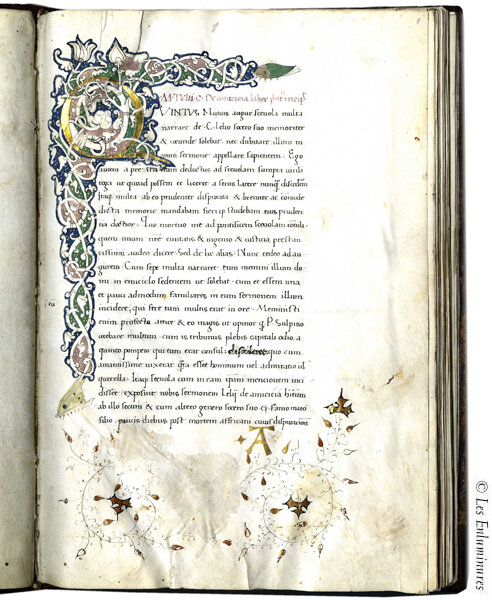 M. TVLII. C. De amicicia
VINTVS Mutius augur scevola multa
narrare de C. Lelio socero suo memoriter
& iocunde solebat nec dubitare illum in
omni sermone appellare sapientem. Ego
autem a patre ita eram deductus ad scevolam sumpta virili
toga ut quoad possem et liceret a senis latere nunq̃ discederem
Itaq; multa ab eo prudenter disputata & breviter ac comode
dicta memorie mandabam fieri q; studebam eius pruden
tia doctior. Quo mortuo me ad pontificem scevolam contuli
quem unum nre civitatis & ingenio & iusticia prestan
tissimu audeo dicere. Sed de hoc alias. Nunc redeo ad au
gurem. Cum sepe multa narraret tum memini illum do
mi in emiciclo sedentem ut solebat cum et essem una
et pauci admodum familiares in eum sermonem illum
incidere, qui fere tum multis erat in ore. Meministi
enim profecto attice & eo magis ut opinor q; P. Sulpitio
utebare multum cum is tribunus plebis capitali odio a
quinto pompeio qui tum erat consul dissideret quo cum
amantissime vixerat q̃ta esset hominum vel admiratio vl
querella. Itaq; scevola cum in eam ipsam mentionem inci
disset exposuit nobis sermonem Lelij de amicicia hitum
ab illo secum & cum altero genero socero suo G. Fanio marci
filio paucis diebus post mortem affricani cuius disputationis
A
© Les Enluminures